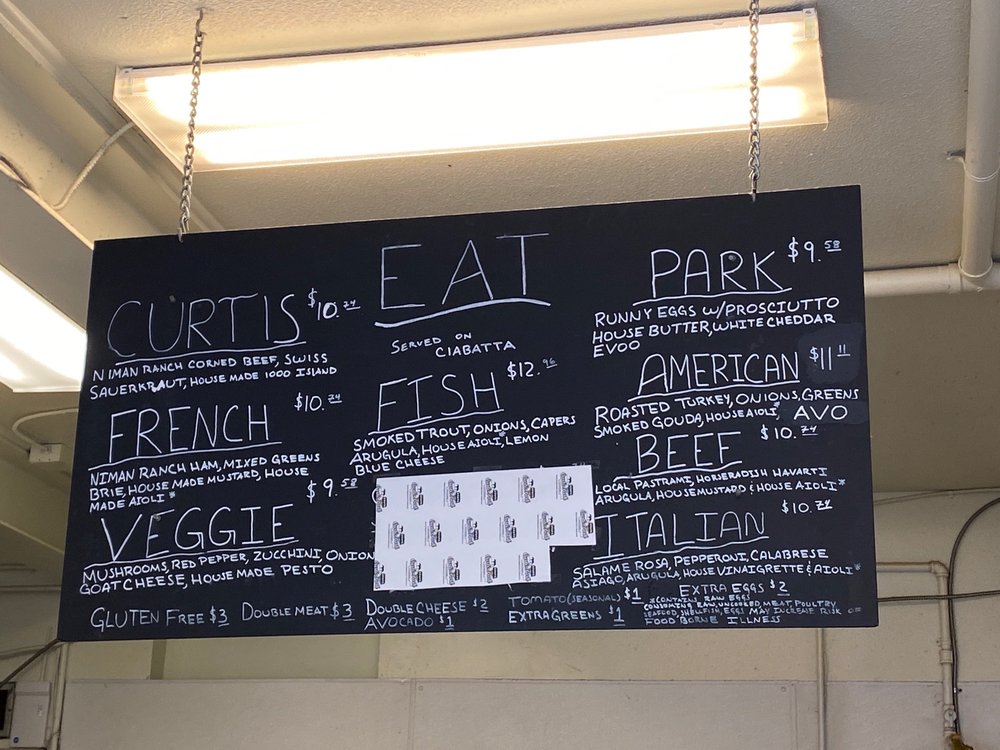 EAT
SERVED ON
CIABATTA
CURTIS $10.74
NIMAN RANCH CORNED BEEF, SWISS
SAUERKRAUT, HOUSE MADE 1000 ISLAND
FRENCH $10.74
NIMAN RANCH HAM, MIXED GREENS
BRIE, HOUSE MADE MUSTARD, HOUSE
MADE AIOLI*
VEGGIE $9.58
MUSHROOMS, RED PEPPER, ZUCCHINI, ONION
GOAT CHEESE, HOUSE MADE PESTO
FISH $12.96
SMOKED TROUT, ONIONS, CAPERS
ARUGULA, HOUSE AIOLI*, LEMON
BLUE CHEESE
PARK $9.58
RUNNY EGGS W/PROSCIUTTO
HOUSE BUTTER, WHITE CHEDDAR
EVOO
AMERICAN $11.11
ROASTED TURKEY, ONIONS, GREENS
SMOKED GOUDA, HOUSE AIOLI*, AVO
BEEF $10.74
LOCAL PASTRAMI, HORSERADISH HAVARTI
ARUGULA, HOUSE MUSTARD & HOUSE AIOLI*
ITALIAN $10.74
SALAME ROSA, PEPPERONI, CALABRESE
ASIAGO, ARUGULA, HOUSE VINAIGRETTE & AIOLI*
GLUTEN FREE $3
DOUBLE MEAT $3
DOUBLE CHEESE $2
AVOCADO $1
TOMATO (SEASONAL) $1
EXTRA GREENS $1
EXTRA EGGS $2
*CONTAINS RAW EGGS
CONSUMING RAW, UNCOOKED, MEAT, POULTRY
SEAFOOD, SHELLFISH, EGGS MAY INCREASE RISK OF
FOOD BORNE ILLNESS